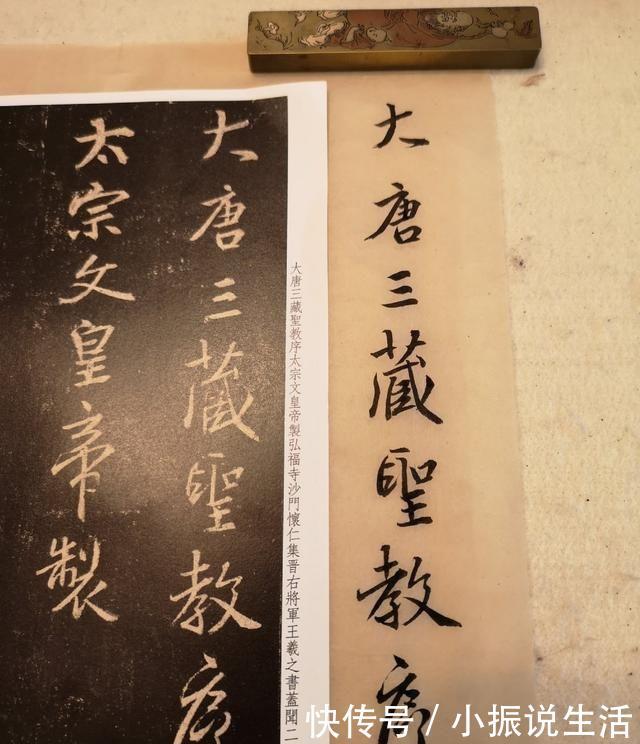 大唐三藏聖教序
大唐三藏聖教序太宗文皇帝製弘福寺沙門懷仁集晋右將軍王羲之書蓋聞二
大唐三藏聖教序
太宗文皇帝製
快传号/小振说生活